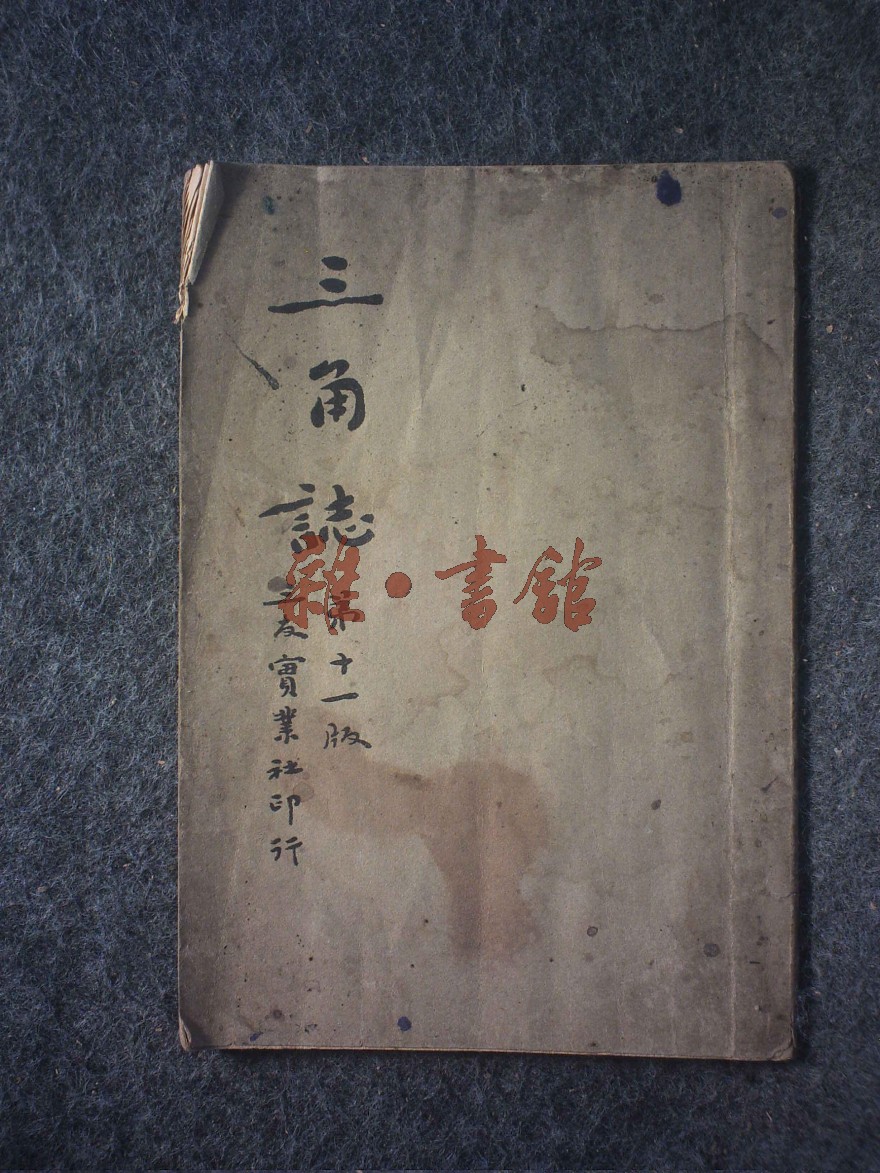 三角誌
第十一版
三友實業社印行
雜·書館